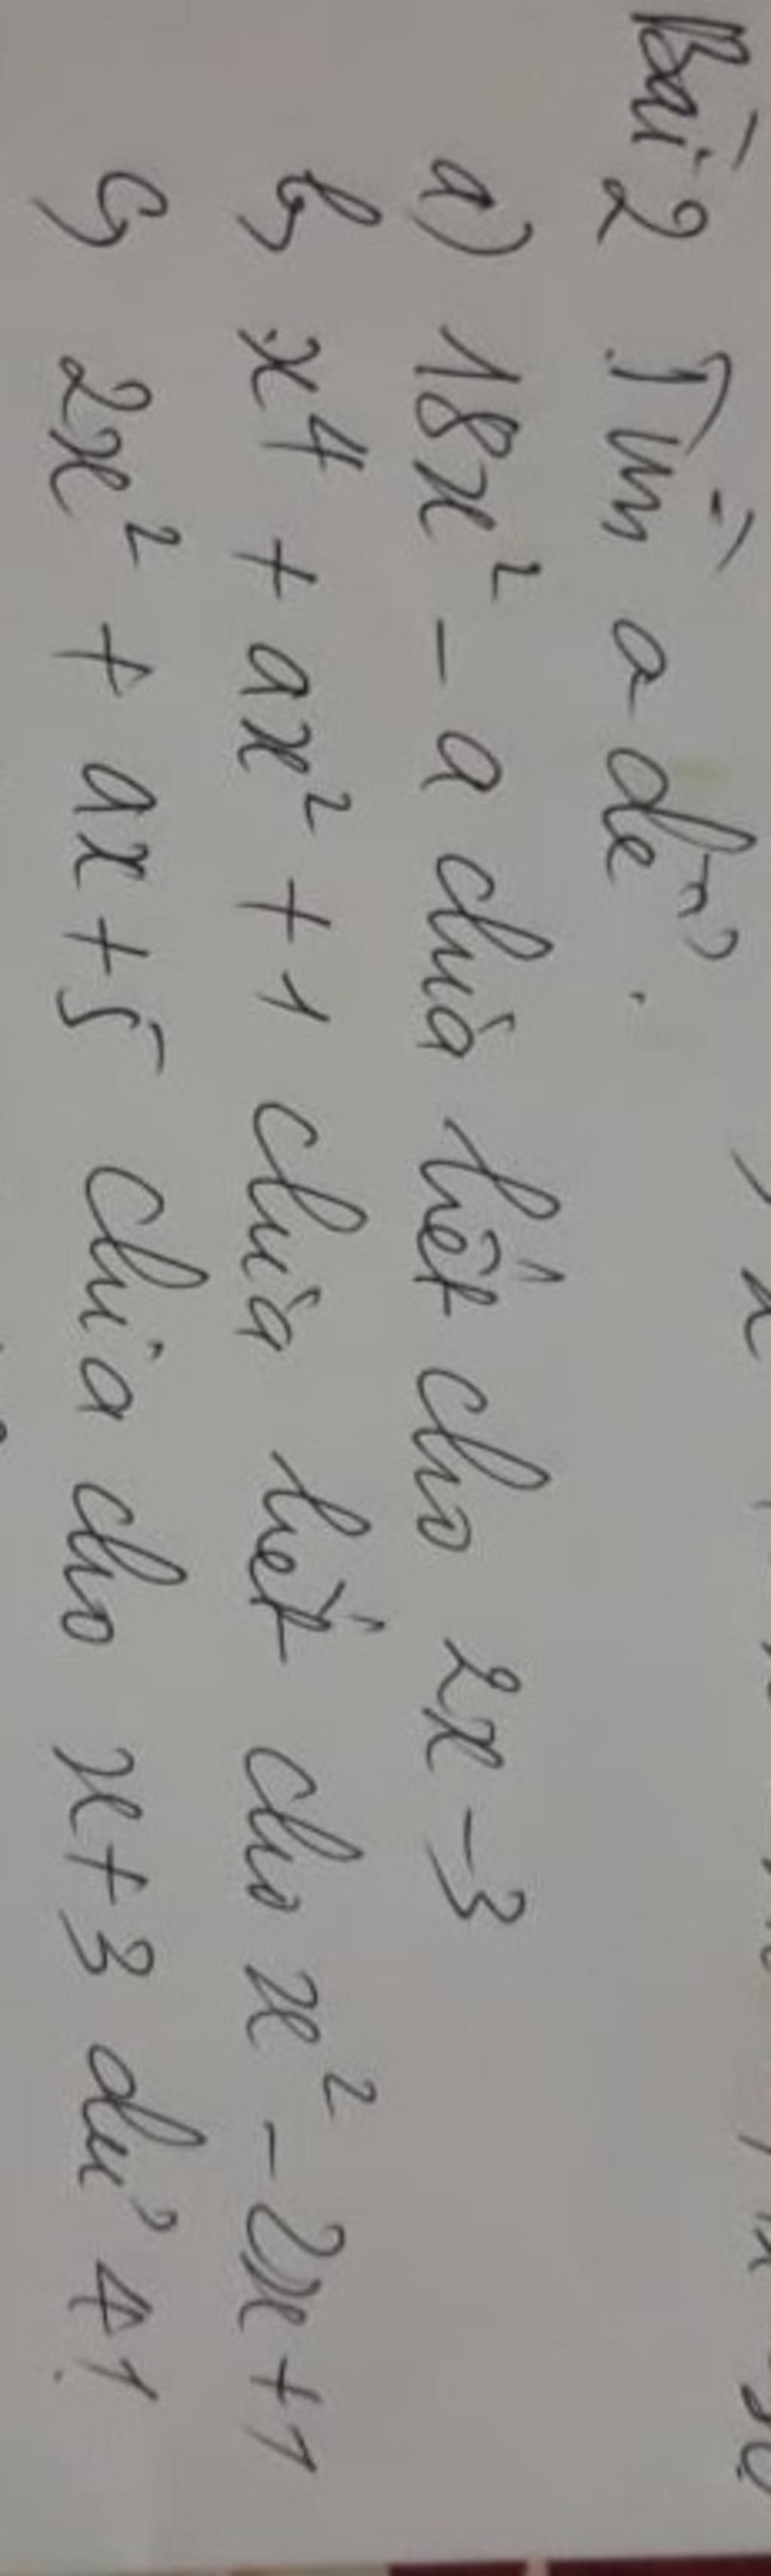 Bài 2 Tìm a để.
a) 18x² - a chia hết cho 2x - 3
b, x⁴ + ax² + 1 chia hết cho x² - 2x + 1
c, 2x² + ax + 5 chia cho x + 3 dư 41